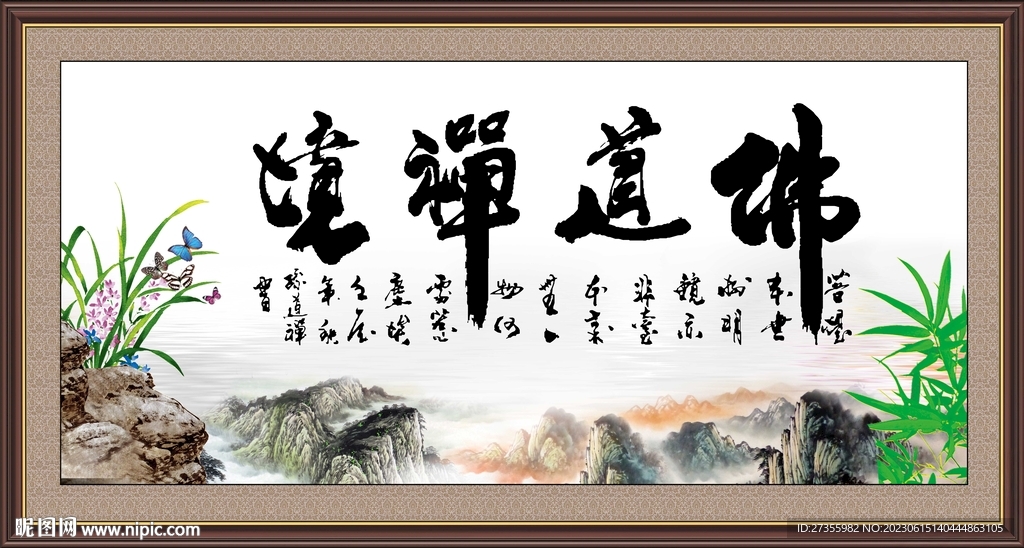 佛道禪境
菩提
本無
樹明
鏡亦
非臺
本來
無一
物何
處惹
塵埃
年秋
道禪
書
昵图网 www.nipic.com
ID:27355982 NO:20230615140444863105